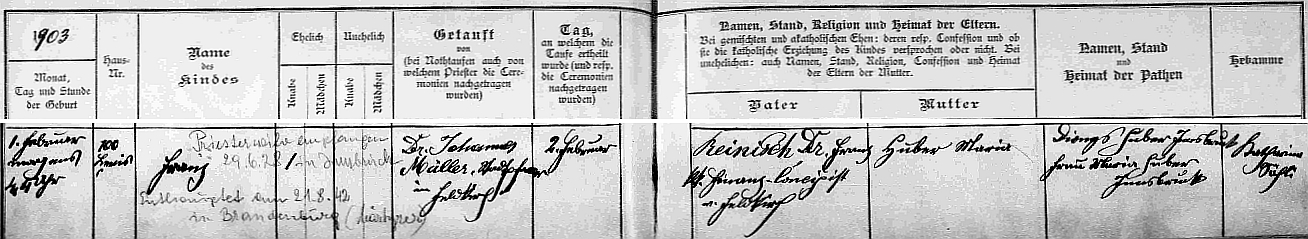 1903
Monat,
Tag und Stunde
der Geburt
Haus-
Nr.
Name
des
Kindes
Ehelich
Unehelich
Knabe
Mädchen
Knabe
Mädchen
Getauft
von
(bei Nothtaufen auch von
welchem Priester die Cere-
monien nachgetragen
wurden)
Tag,
an welchem die
Taufe ertheilt
wurde (und resp.
die Ceremonien
nachgetragen
wurden)
Namen, Stand, Religion und Heimat der Eltern.
Bei gemischten und akatholischen Ehen: deren resp. Confession und ob
sie die katholische Erziehung des Kindes versprochen oder nicht. Bei
unehelichen: auch Namen, Stand, Religion, Confession und Heimat
der Eltern der Mutter.
Vater
Mutter
Namen, Stand
und
Heimat der Pathen
Hebamme
1. Februar
morgens
Uhr
100
Franz
Priesterweihe empfangen
29.6.28 in Innsbruck
Enthauptet am 21.8.42
in Brandenburg (Märtyrer)
1
Dr. Johannes
Müller, Stadtpfarrer
in
Feldkirch
2. Februar
Reinisch Dr. Franz
kk. Finanz-Concipist
v. Feldkirch
Huber Maria
Dionys Huber Innsbruck
Frau Maria Huber
Innsbruck
Katharina